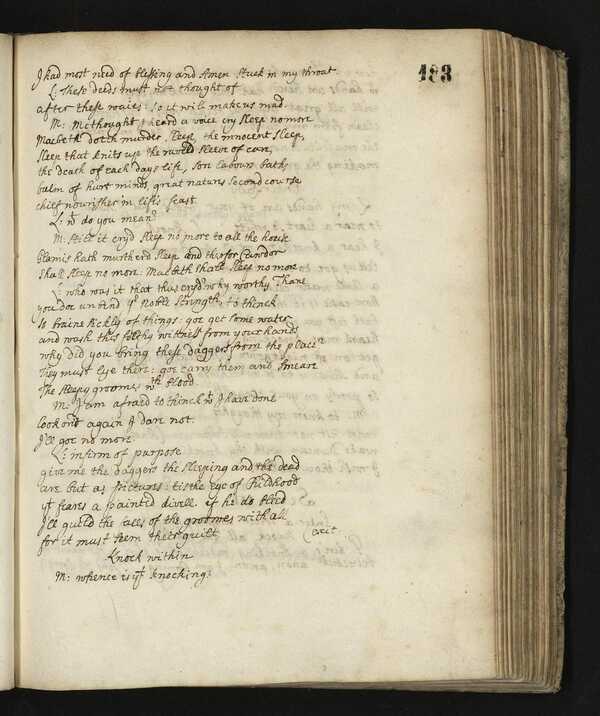 183
I had most need of blessing and Amen stuck in my throat
L: These deeds must not thought of
after these waies: so it will make us mad.
M: Methought I heard a voice cry sleep no more
Macbeth doth murder sleep, the innocent sleep,
Sleep that knits up the sleeve of care,
the death of each days life, sore labours bath
balm of hurt minds, great natures second course
chief nourisher in lifes feast
L: wt do you mean?
M: Still it cryd sleep no more to all the house
Glamis hath murtherd sleep and therfor Cawdor
shall sleep no more: Macbeth shall sleep no more
L: who was it that thus cryd why worthy Thane
you doe unbend yr noble strength, to thinck
so braine sickly of things: goe get some water
and wash this filthy witness from your hands
why did you bring these daggers from the place
They must lye there: goe carry them and smeare
The sleepy groomes wth blood
M: I am afraid to thinck wt I have done
look ont again I dare not.
I'll goe no more
L: infirm of purpose
give me the daggers the sleeping and the dead
are but as pictures: tis the eye of childhood
yt feares a painted divell. if he do bleed
I'll guild the faces of the groomes withall
for it must seem their guilt exit
Knock within
M: whence is yt knocking?